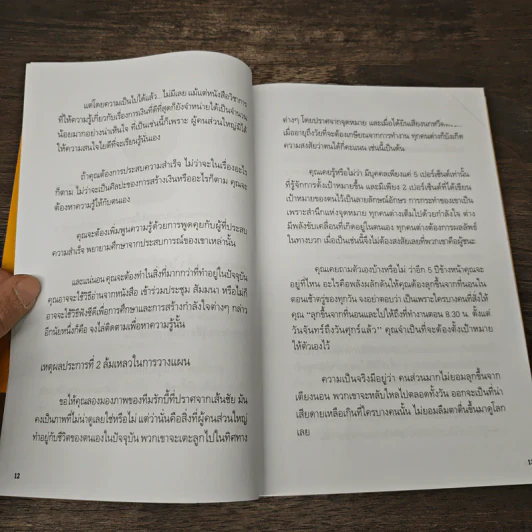 แต่โดยความเป็นไปได้แล้ว ไม่มีเลย แม้แต่หนังสือวิชาการ
ที่ให้ความรู้เกี่ยวกับเรื่องการเงินที่ดีที่สุดก็ยังจำหน่ายได้เป็นจำนวน
น้อยมากอย่างน่าเห็นใจ ที่เป็นเช่นนี้ก็เพราะ ผู้คนส่วนใหญ่มิได้
ให้ความสนใจใยดีที่จะเรียนรู้นั่นเอง
ถ้าคุณต้องการประสบความสำเร็จ ไม่ว่าจะในเรื่องอะไร
ก็ตาม ไม่ว่าจะเป็นศิลปะของการสร้างเงินหรืออะไรก็ตาม คุณจะ
ต้องหาความรู้ให้กับตนเอง
คุณจะต้องเพิ่มพูนความรู้ด้วยการพูดคุยกับผู้ที่ประสบ
ความสำเร็จ พยายามศึกษาจากประสบการณ์ของเขาเหล่านั้น
และแน่นอน คุณจะต้องทำในสิ่งที่มากกว่าที่ทำอยู่ในปัจจุบัน
คุณอาจจะใช้วิธีอ่านจากหนังสือ เข้าร่วมประชุม สัมมนา หรือไม่ก็
อาจจะใช้วิธีฟังซีดีเพื่อการศึกษาและการสร้างกำลังใจต่างๆ กล่าว
อีกนัยหนึ่งก็คือ จงใส่ติดตามเพื่อหาความรู้นั้น
เหตุผลประการที่ 2 ล้มเหลวในการวางแผน
ขอให้คุณลองมองภาพของทีมรักบี้ที่ปราศจากเส้นชัย มัน
คงเป็นภาพที่ไม่น่าดูเลยใช่หรือไม่ แต่ว่านั่นคือสิ่งที่ผู้คนส่วนใหญ่
ทำอยู่กับชีวิตของตนเองในปัจจุบัน พวกเขาจะเตะลูกไปในทิศทาง
12
ต่างๆ โดยปราศจากจุดหมาย และเมื่อได้ยินเสียงนกหวีด
เมื่ออายุถึงวัยที่จะต้องเกษียณจากการทำงาน ทุกคนต่างก็บังเกิด
ความสงสัยว่าตนได้กี่คะแนน เช่นนี้เป็นต้น
คุณเคยรู้หรือไม่ว่า มีบุคคลเพียงแค่ 5 เปอร์เซ็นต์เท่านั้น
ที่รู้จักการตั้งเป้าหมายขึ้น และมีเพียง 2 เปอร์เซ็นต์ที่ได้เขียน
เป้าหมายของตนไว้เป็นลายลักษณ์อักษร การกระทำของเขาเป็น
เพราะสำนึกแห่งจุดหมาย ทุกคนต่างเต็มไปด้วยกำลังใจ ต่าง
มีพลังขับเคลื่อนที่เกิดอยู่ในตนเอง ทุกคนต่างต้องการผลลัพธ์
ในทางบวก เมื่อเป็นเช่นนี้จึงไม่ต้องสงสัยเลยที่พวกเขาคือผู้ชนะ
คุณเคยถามตัวเองบ้างหรือไม่ ว่าอีก 5 ปีข้างหน้าคุณจะ
อยู่ที่ไหน อะไรคือพลังผลักดันให้คุณต้องลุกขึ้นจากที่นอนใน
ตอนเช้าตรู่ของทุกวัน จงอย่าตอบว่า เป็นเพราะใครบางคนที่สั่งให้
คุณ “ลุกขึ้นจากที่นอนและไปให้ถึงที่ทำงานตอน 8.30 น. ตั้งแต่
วันจันทร์ถึงวันศุกร์แล้ว” คุณจำเป็นที่จะต้องตั้งเป้าหมาย
ให้ตัวเองไว้
ความเป็นจริงมีอยู่ว่า คนส่วนมากไม่ยอมลุกขึ้นจาก
เตียงนอน พวกเขาจะหลับใหลไปตลอดทั้งวัน ออกจะเป็นที่น่า
เสียดายเหลือเกินที่ใครบางคนนั้น ไม่ยอมลืมตาตื่นขึ้นมาดูโลก
เลย